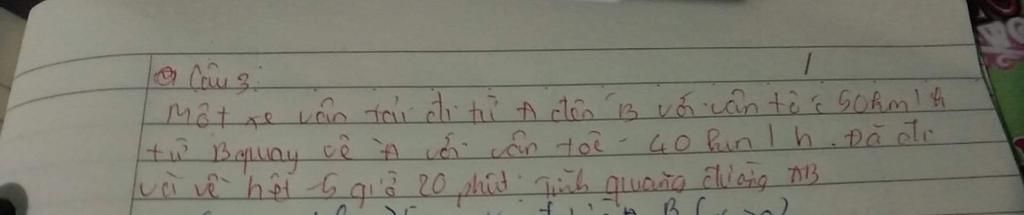 Câu 3:
Một xe vận tải đi từ A đến B với vận tốc 50km/h
từ B quay về A với vận tốc 40km/h. Đã đi
và về hết 5 giờ 20 phút. Tính quãng đường AB